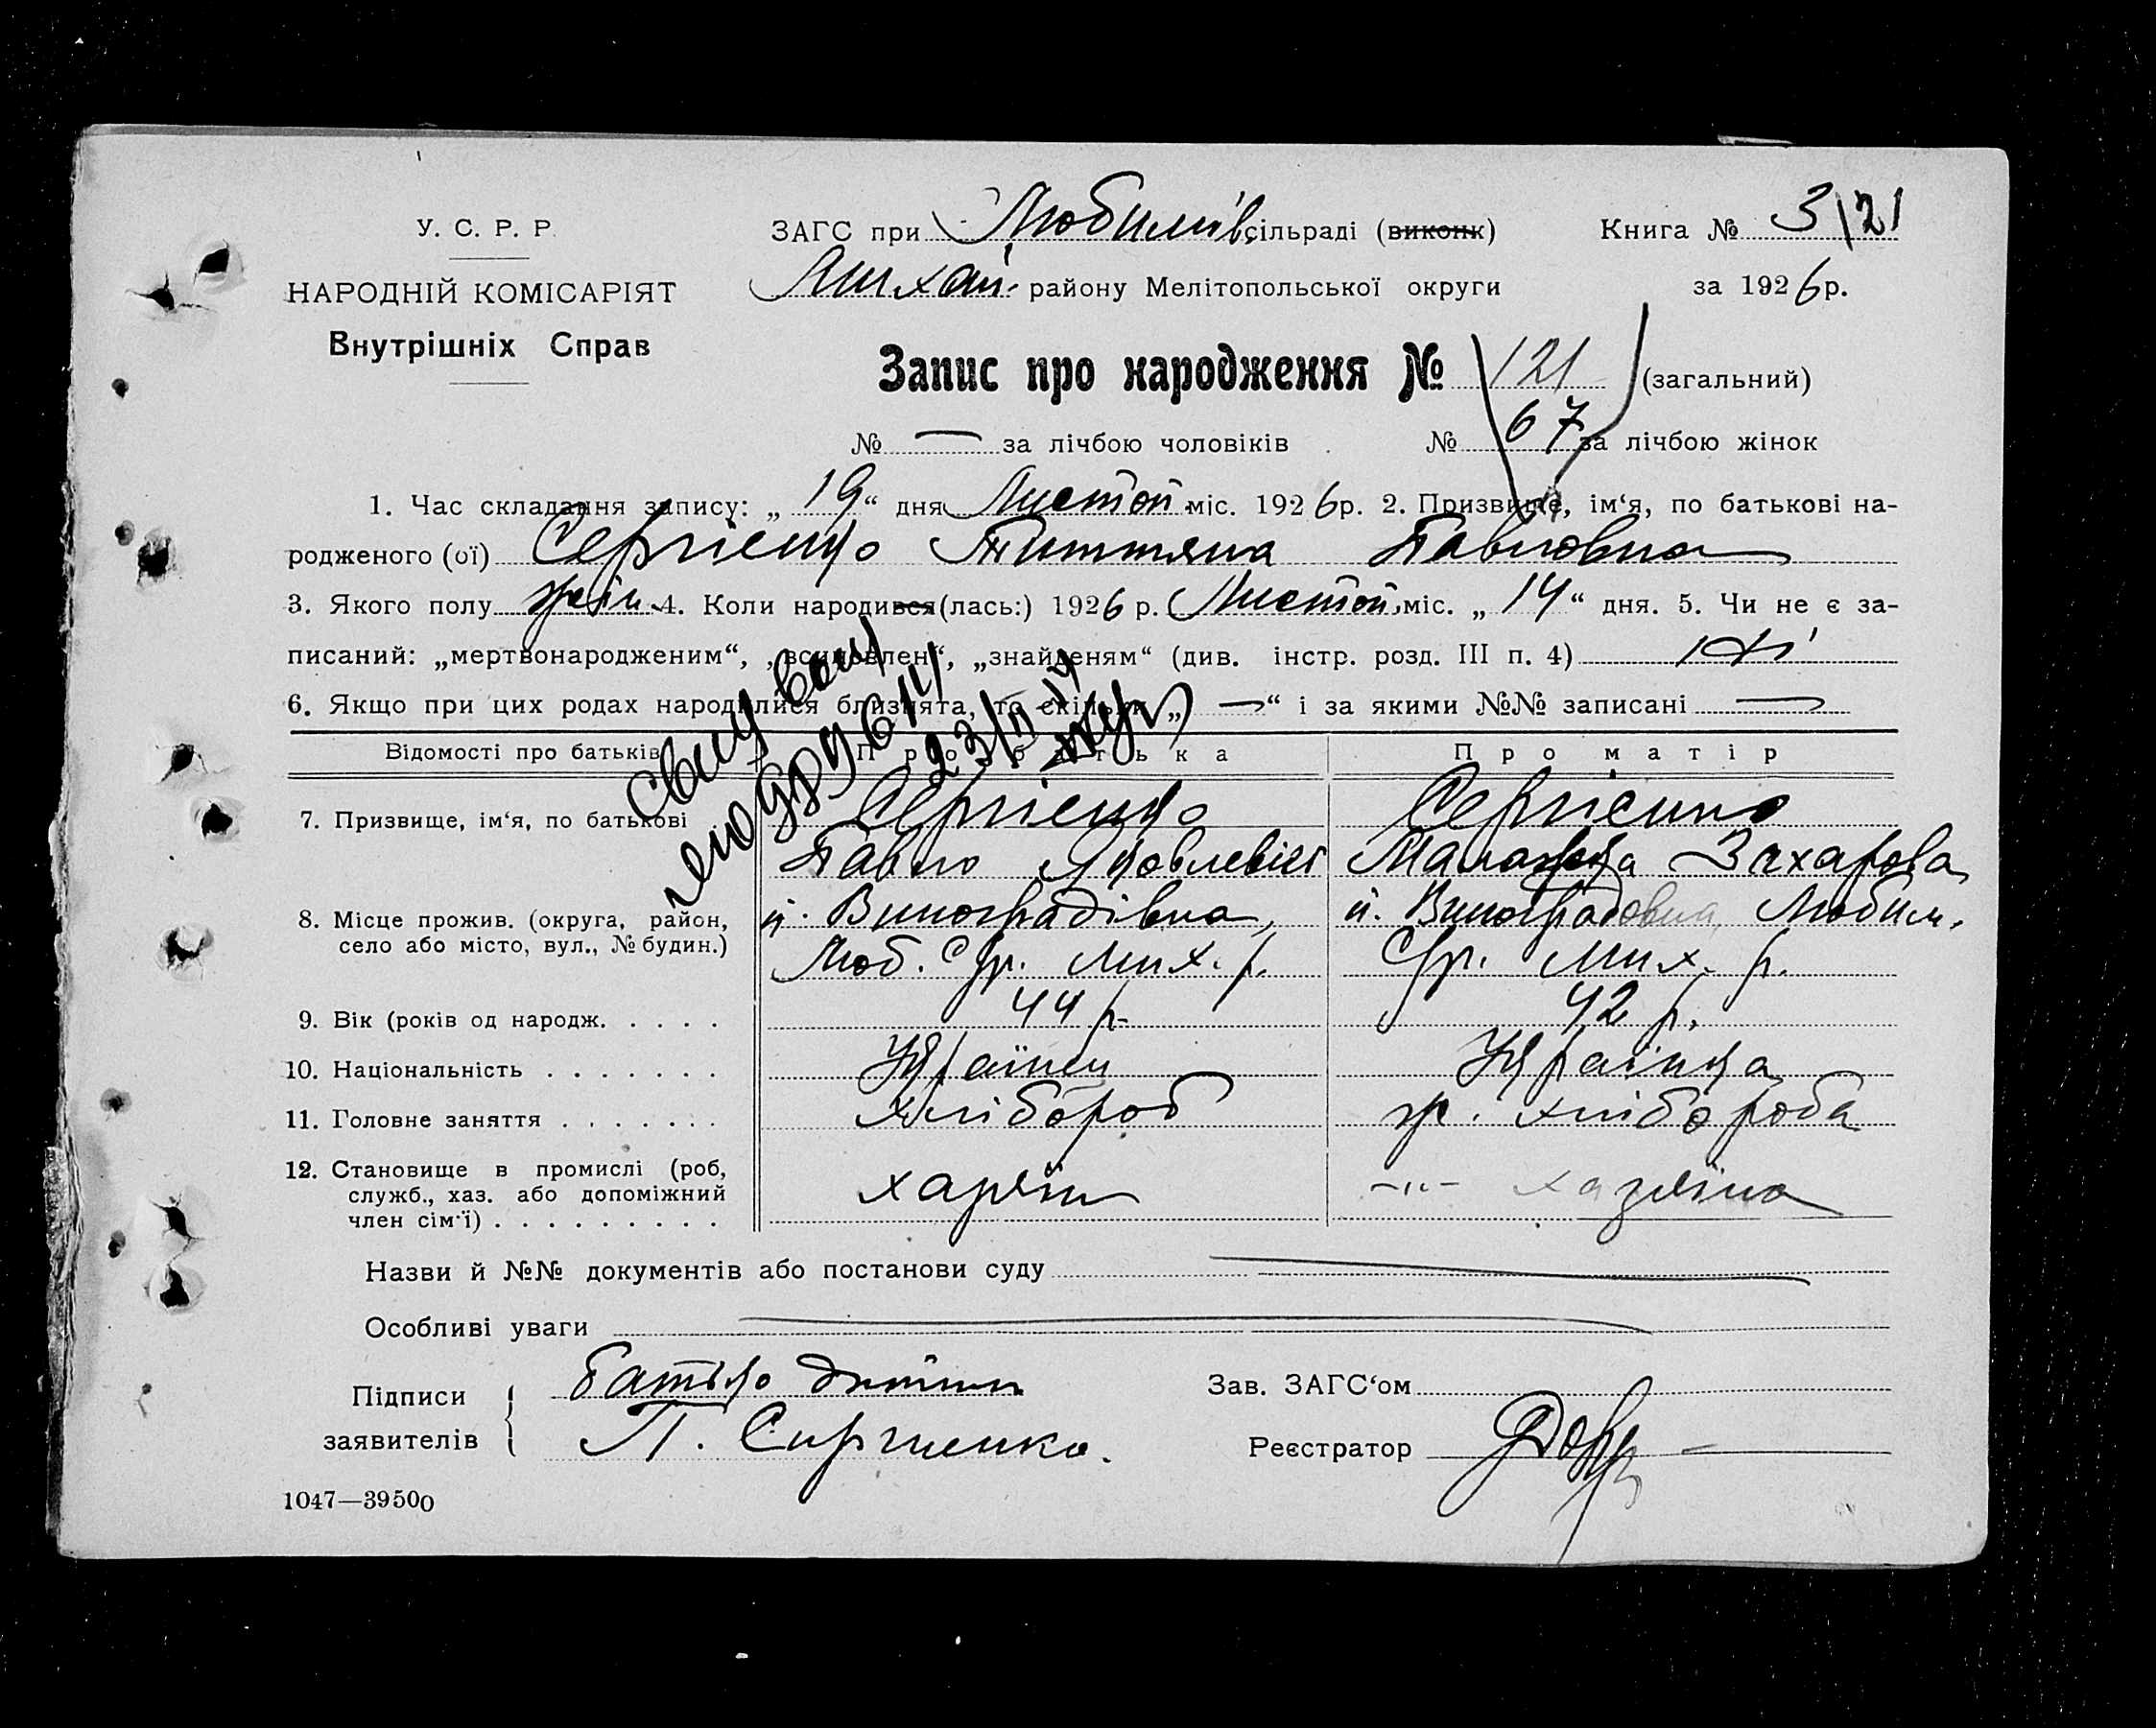 У. С. Р. Р.
НАРОДНІЙ КОМІСАРІЯТ
Внутрішніх Справ
ЗАГС при Любимів. сільраді (виконк) Книга № 3/21
Михай. району Мелітопольської округи за 1926 р.
Запис про народження № 121 (загальний)
№ — за лічбою чоловіків № 67 за лічбою жінок
1. Час складання запису: „19“ дня Листоп. міс. 1926 р. 2. Призвище, ім‘я, по батькові на-
родженого (ої) Сергієнко Титтяна Павловна
3. Якого полу жін. 4. Коли народився (лась:) 1926 р. Листоп. міс. „14“ дня. 5. Чи не є за-
писаний: „мертвонародженим“, „всиновлен“, „знайденям“ (див. інстр. розд. III п. 4) ні
6. Якщо при цих родах народилися близнята, то скільки „—“ і за якими №№ записані —
Відомості про батьків Про батька Про матір
7. Призвище, ім‘я, по батькові Сергієнко Сергієнко
Павло Яковлевич Маланка Захарова
8. Місце прожив. (округа, район, п. Виноградівка, п. Виноградовка, Любим.
село або місто, вул., № будин.) Люб. С/р. Мих. р. С/р. Мих. р.
9. Вік (років од народж. . . . . 44 р. 42 р.
10. Національність . . . . . . . Українец Українка
11. Головне заняття . . . . . . . хлібороб ж. хлібороба
12. Становище в промислі (роб,
служб., хаз. або допоміжний хазяїн -"- хазяїна
член сім‘ї) . . . . . . . . .
Назви й №№ документів або постанови суду —
Особливі уваги —
Підписи батько дитини Зав. ЗАГС‘ом
заявителів П. Сиргиенко. Реєстратор
1047—39500